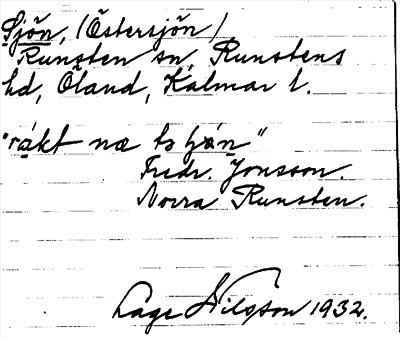 Sjön, (Östersjön)
Runsten sn, Runstens
hd, Öland, Kalmar l.
"räkt næ ts hán"
Fredr. Jonsson.
Norra Runsten.
Lage Nilsson 1932.